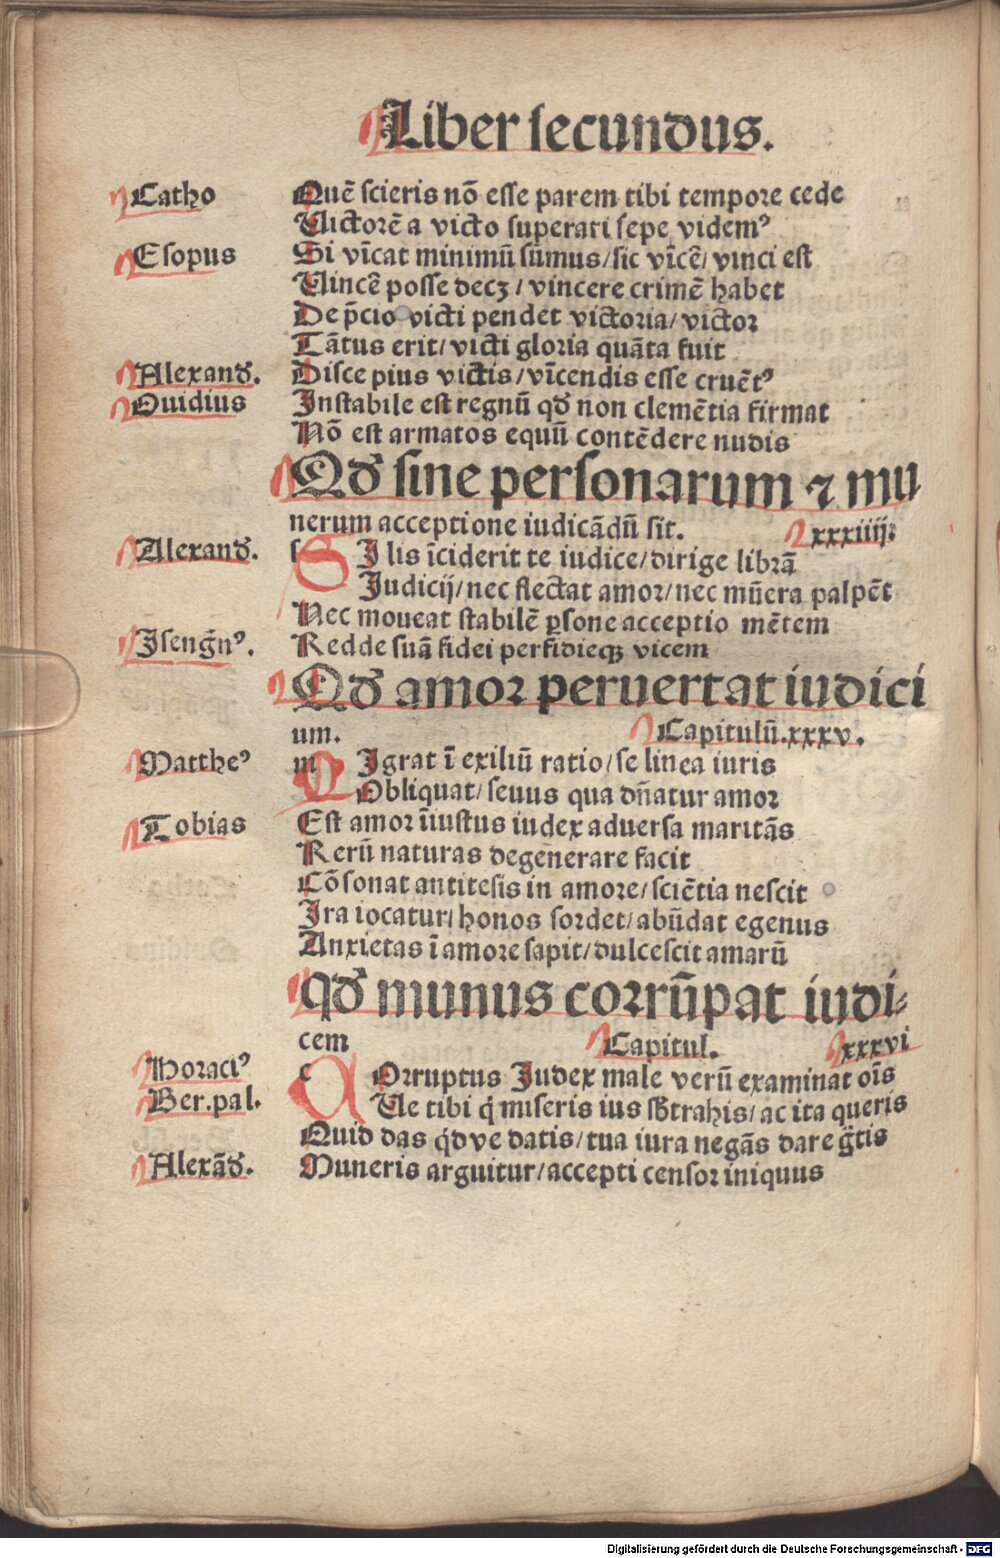 Liber secundus.
Catho Quē scieris nō esse parem tibi tempore cede
Victorē a victo superari sepe videmꝰ
Esopus Si vīcat minimū sūmus/sic vīcē/vinci est
Vincē posse decꝫ/vincere crimē habet
De p̄cio victi pendet victoria/victor
Tātus erit/victi gloria quāta fuit
Alexand̄. Disce pius victis/vīcendis esse cruētꝰ
Ouidius Instabile est regnū qd̄ non clemētia firmat
Nō est armatos equū contēdere nudis
Qd̄ sine personarum ⁊ mu
nerum acceptione iudicādū sit. xxxiiij:
Alexand̄. SI lis īciderit te iudice/dirige librā
Judicij/nec flectat amor/nec mūera palpēt
Nec moueat stabilē ꝑsone acceptio mētem
Isengn̄ꝰ. Redde suā fidei perfidieqꝫ vicem
Qd̄ amor peruertat iudici
um. Capitulū.xxxv.
Mattheꝰ mIgrat ī exiliū ratio/se linea iuris
Obliquat/seuus qua dn̄atur amor
Tobias Est amor īiustus iudex aduersa maritās
Rerū naturas degenerare facit
Cōsonat antitesis in amore/sciētia nescit
Ira iocatur/honos sordet/abūdat egenus
Anxietas ī amore sapit/dulcescit amarū
qd̄ munus corrūpat iudi⸗
cem Capitul. xxxvi
Horaciꝰ cOrruptus Judex male verū examinat oīs
Ber.pal. Ve tibi q̄ miseris ius sb̄trahis/ac ita queris
Quid das qd̄ve datis/tua iura negās dare gr̄tis
Alexād̄. Muneris arguitur/accepti censor iniquus
Digitalisierung gefördert durch die Deutsche Forschungsgemeinschaft - DFG